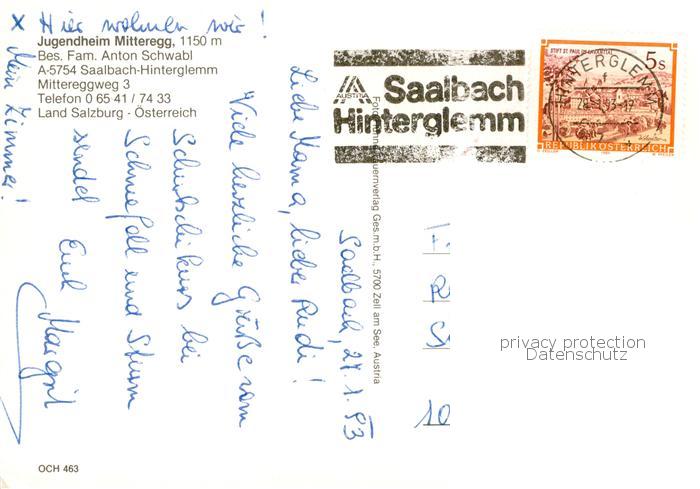 x Hier wohnen wir!
Mein Zimmer!
Jugendheim Mitteregg, 1150 m
Bes. Fam. Anton Schwabl
A-5754 Saalbach-Hinterglemm
Mittereggweg 3
Telefon 0 65 41 / 74 33
Land Salzburg - Österreich
AUSTRIA
Saalbach
Hinterglemm
STIFT ST. PAUL IM LAVANTTAL
5 S
REPUBLIK ÖSTERREICH
HINTERGLEMM
Saalbach, 27.1.93
Liebe Mama, lieber Rudi!
Viele herzliche Grüße vom
Schischikurs bei
Schneefall und Sturm
sendet Euch
Margit
Ges.m.b.H., 5700 Zell am See, Austria
10
privacy protection
Datenschutz
OCH 463